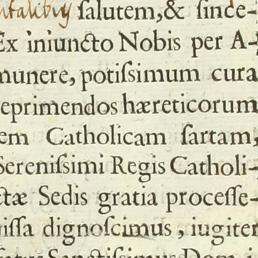 salutem, & since-
Ex iniuncto Nobis per A-
munere, potissimum cura
reprimendos hæreticorum
em Catholicam sartam,
Serenissimi Regis Catholi-
ctæ Sedis gratia processe-
dignoscimus, iugiter
Sanctissimus Dom